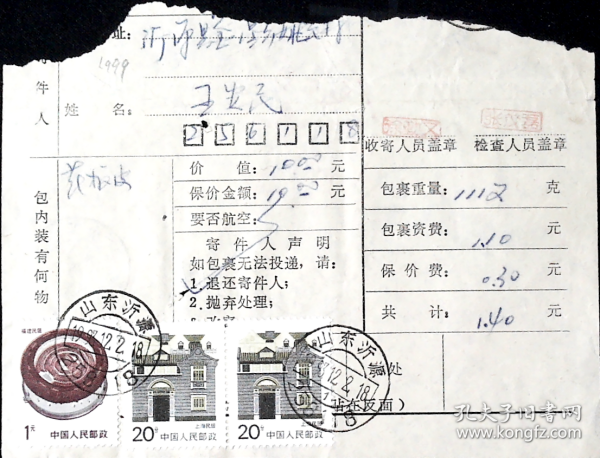 址：沂源县
1999
件人
姓名：王发民
256118
收寄人员盖章 检查人员盖章
包内装有何物
价值：10.00元
保价金额：10.00元
要否航空：
寄件人声明
如包裹无法投递，请：
1.退还寄件人；
2.抛弃处理；
包裹重量：1112克
包裹资费：1.10元
保价费：0.30元
共计：1.40元
处
贴在反面）
山东沂源
12.2.18
山东沂源
12.2.18
福建民居
1元
中国人民邮政
20分
上海民居
中国人民邮政
20分
上海民居
中国人民邮政
孔夫子旧书网
www.kongfz.com